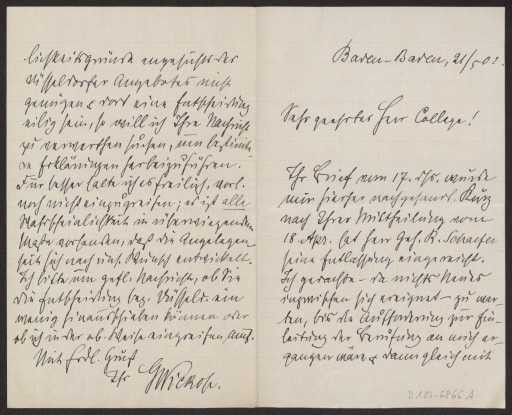 Baden-Baden, 21/5 01.
Sehr geehrter Herr College!
Ihr Brief vom 17. ds. wurde
mir hierher nachgesandt. Kurz
nach Ihrer Mittheilung vom
18 Apr. hat Herr Geh. R. Schaefer
seine Entlassung eingereicht.
Ich gedachte – da nichts Neues
inzwischen sich ereignet – zu war-
ten, bis die Aufforderung zur Ein-
leitung der Berufung an mich er-
gangen wäre & dann gleich mit
lichkeitsgründe angesichts des
Düsseldorfer Angebotes nicht
genügen & dort eine Entscheidung
eilig sein, so will ich Ihre Nachricht
zu verwerthen suchen, um bestimm-
te Erklärungen herbeizuführen.
Für besser halte ich es freilich, vorl.
noch nicht einzugreifen; es ist alle
Wahrscheinlichkeit in überwiegendem
Maße vorhanden, daß die Angelegen-
heit sich nach uns. Wunsch entwickelt.
Ich bitte um gefl. Nachricht, ob Sie
die Entscheidung bez. Düsseld. ein
wenig hinausschieben können oder
ob ich in der ob. Weise eingreifen muß.
Mit frdl. Gruß
Ihr
D 101-6866.A